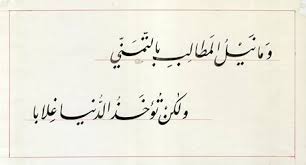 وَمَا نَيْلُ المَطَالِبِ بِالتَّمَنِّي
وَلٰكِنْ تُؤْخَذُ الدُّنْيَا غِلَابَا